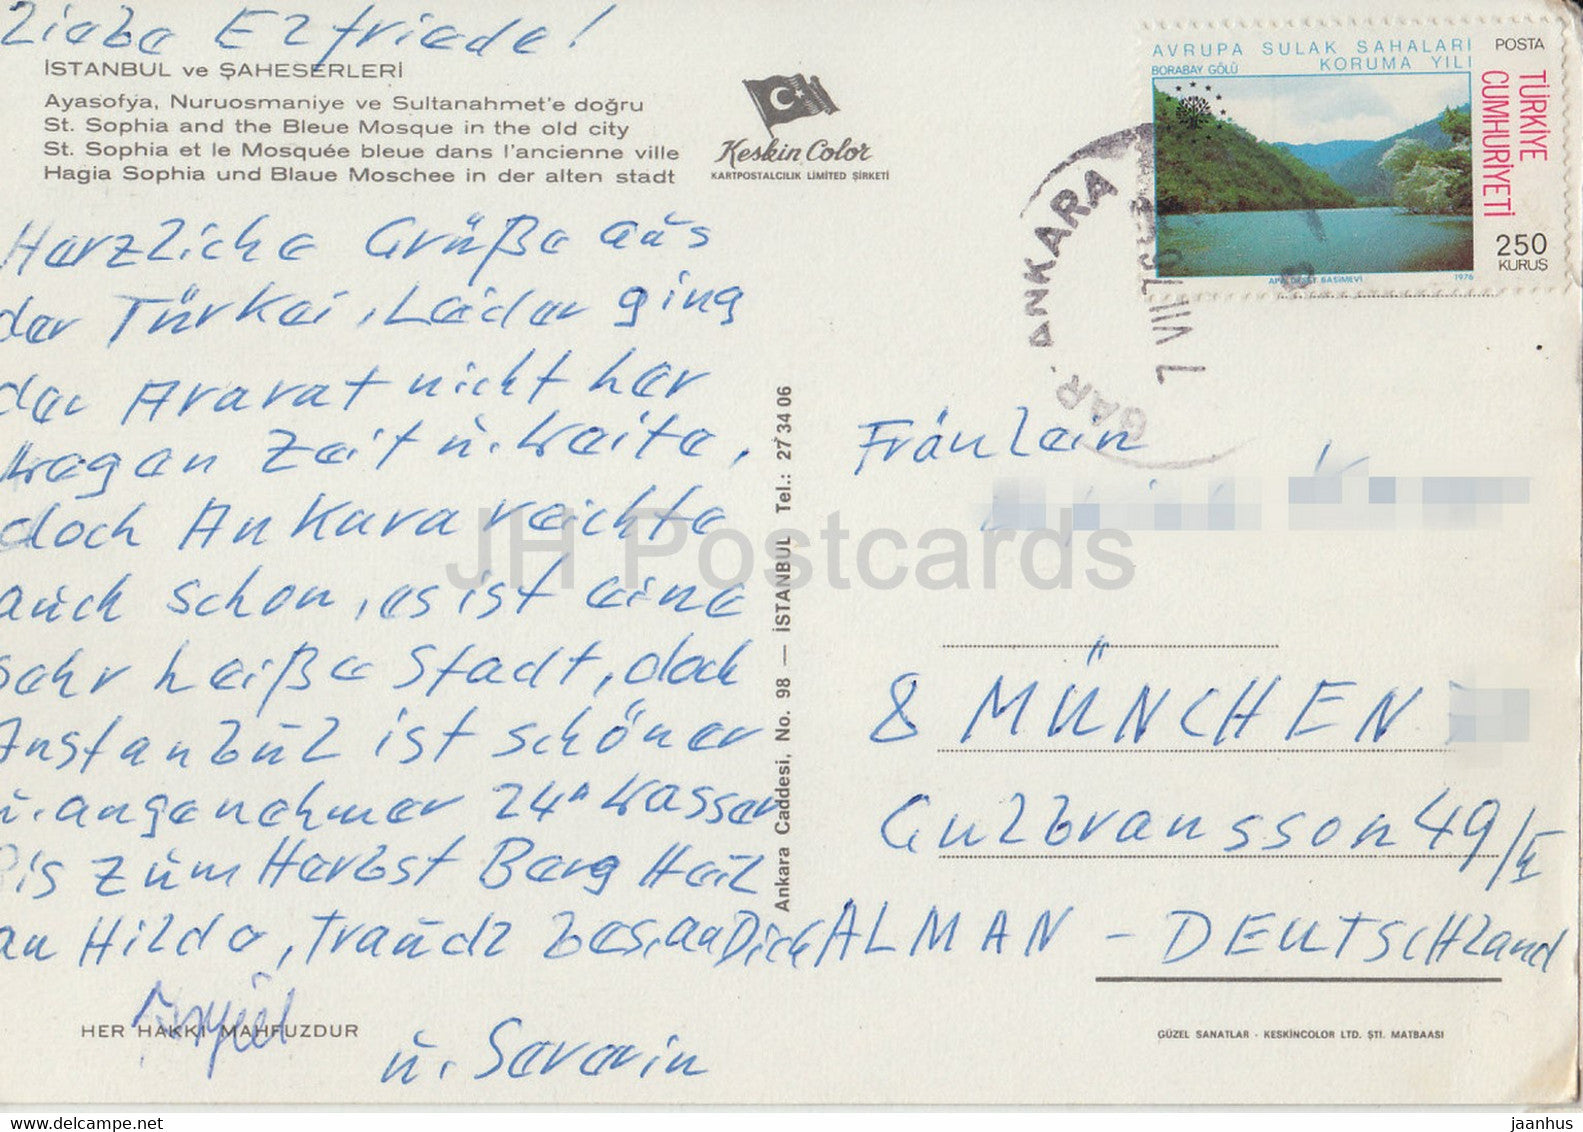 Liebe Elfriede!
İSTANBUL ve ŞAHESERLERİ
Ayasofya, Nuruosmaniye ve Sultanahmet'e doğru
St. Sophia and the Bleue Mosque in the old city
St. Sophia et le Mosquée bleue dans l'ancienne ville
Hagia Sophia und Blaue Moschee in der alten stadt
Keskin Color
KARTPOSTALCILIK LIMITED ŞİRKETİ
AVRUPA SULAK SAHALARI
KORUMA YILI
BORABAY GÖLÜ
POSTA
TÜRKİYE
CUMHURİYETİ
250
KURUŞ
1976
GAR. ANKARA
Herzliche Grüße aus
der Türkei, Leider ging
der Ararat nicht her
wegen Zeit u. Weite,
doch Ankara reichte
auch schon, es ist eine
sehr heiße Stadt, doch
Instanbul ist schöner
u. angenehmer 24° Wasser
Bis zum Herbst Berg Heil
an Hilde, Traudl bes. an Dich
u. Severin
HER HAKKI MAHFUZDUR
Ankara Caddesi, No. 98 — İSTANBUL Tel.: 27 34 06
Fräulein
8 MÜNCHEN
Gulbransson 49/II
ALMAN - DEUTSCHland
GÜZEL SANATLAR - KESKİNCOLOR LTD. ŞTİ. MATBAASI
JH Postcards
jaanhus
delcampe.net